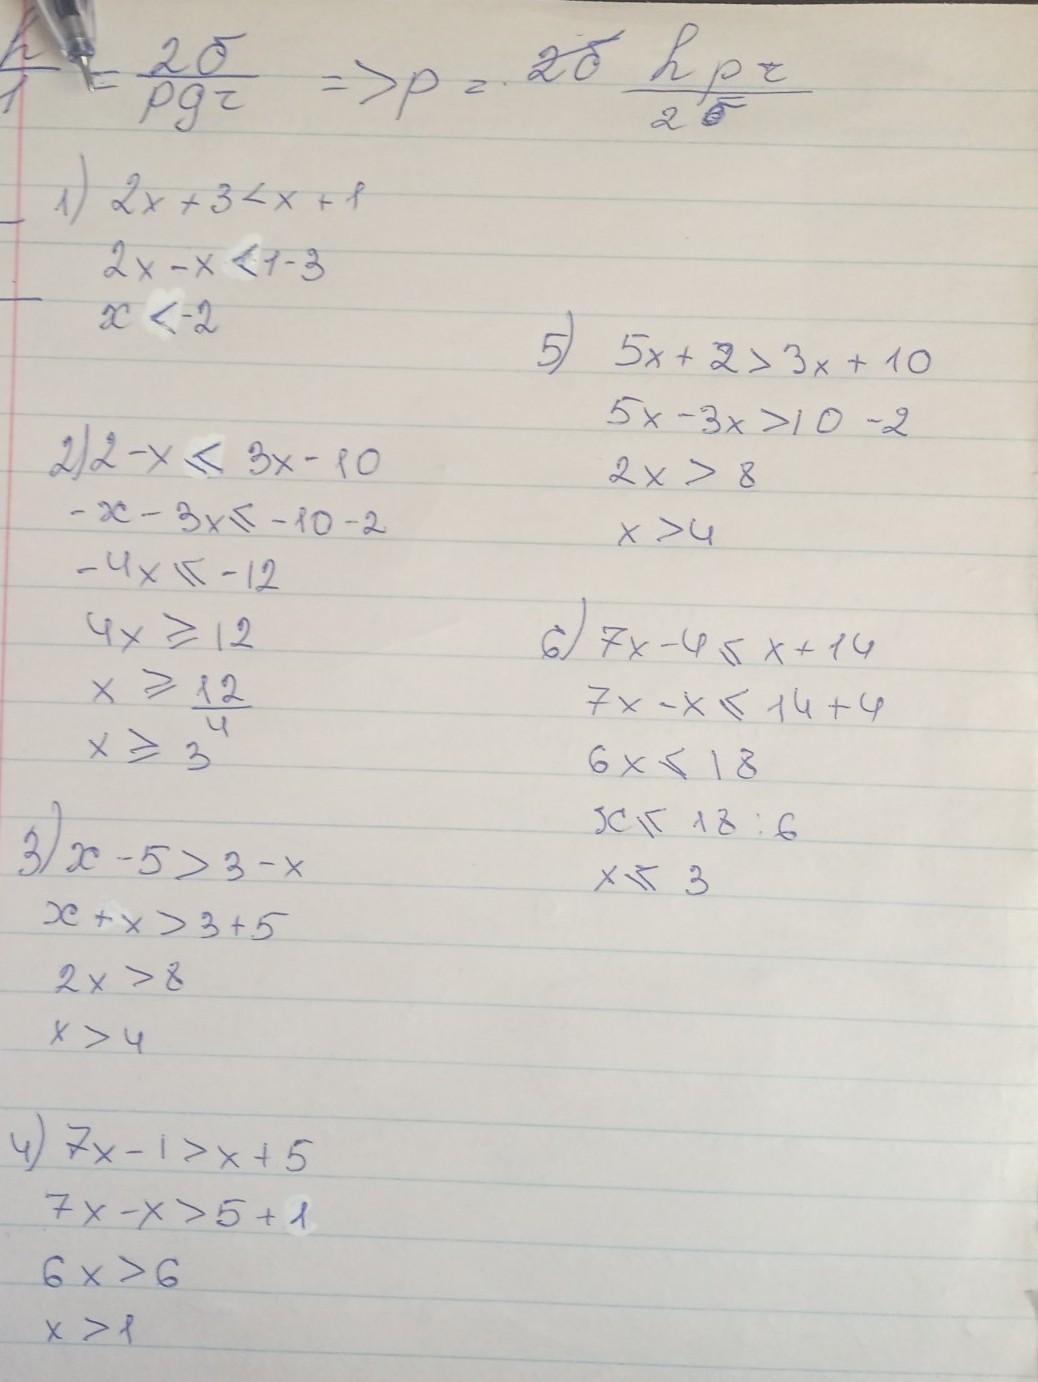 h/1 = 2σ/ρgr => ρ = 2σ hρr/2σ
1) 2x + 3 < x + 1
2x - x < 1 - 3
x < -2
2) 2 - x ⩽ 3x - 10
-x - 3x ⩽ -10 - 2
-4x ⩽ -12
4x ⩾ 12
x ⩾ 12/4
x ⩾ 3
3) x - 5 > 3 - x
x + x > 3 + 5
2x > 8
x > 4
4) 7x - 1 > x + 5
7x - x > 5 + 1
6x > 6
x > 1
5) 5x + 2 > 3x + 10
5x - 3x > 10 - 2
2x > 8
x > 4
6) 7x - 4 ⩽ x + 14
7x - x ⩽ 14 + 4
6x ⩽ 18
x ⩽ 18 : 6
x ⩽ 3